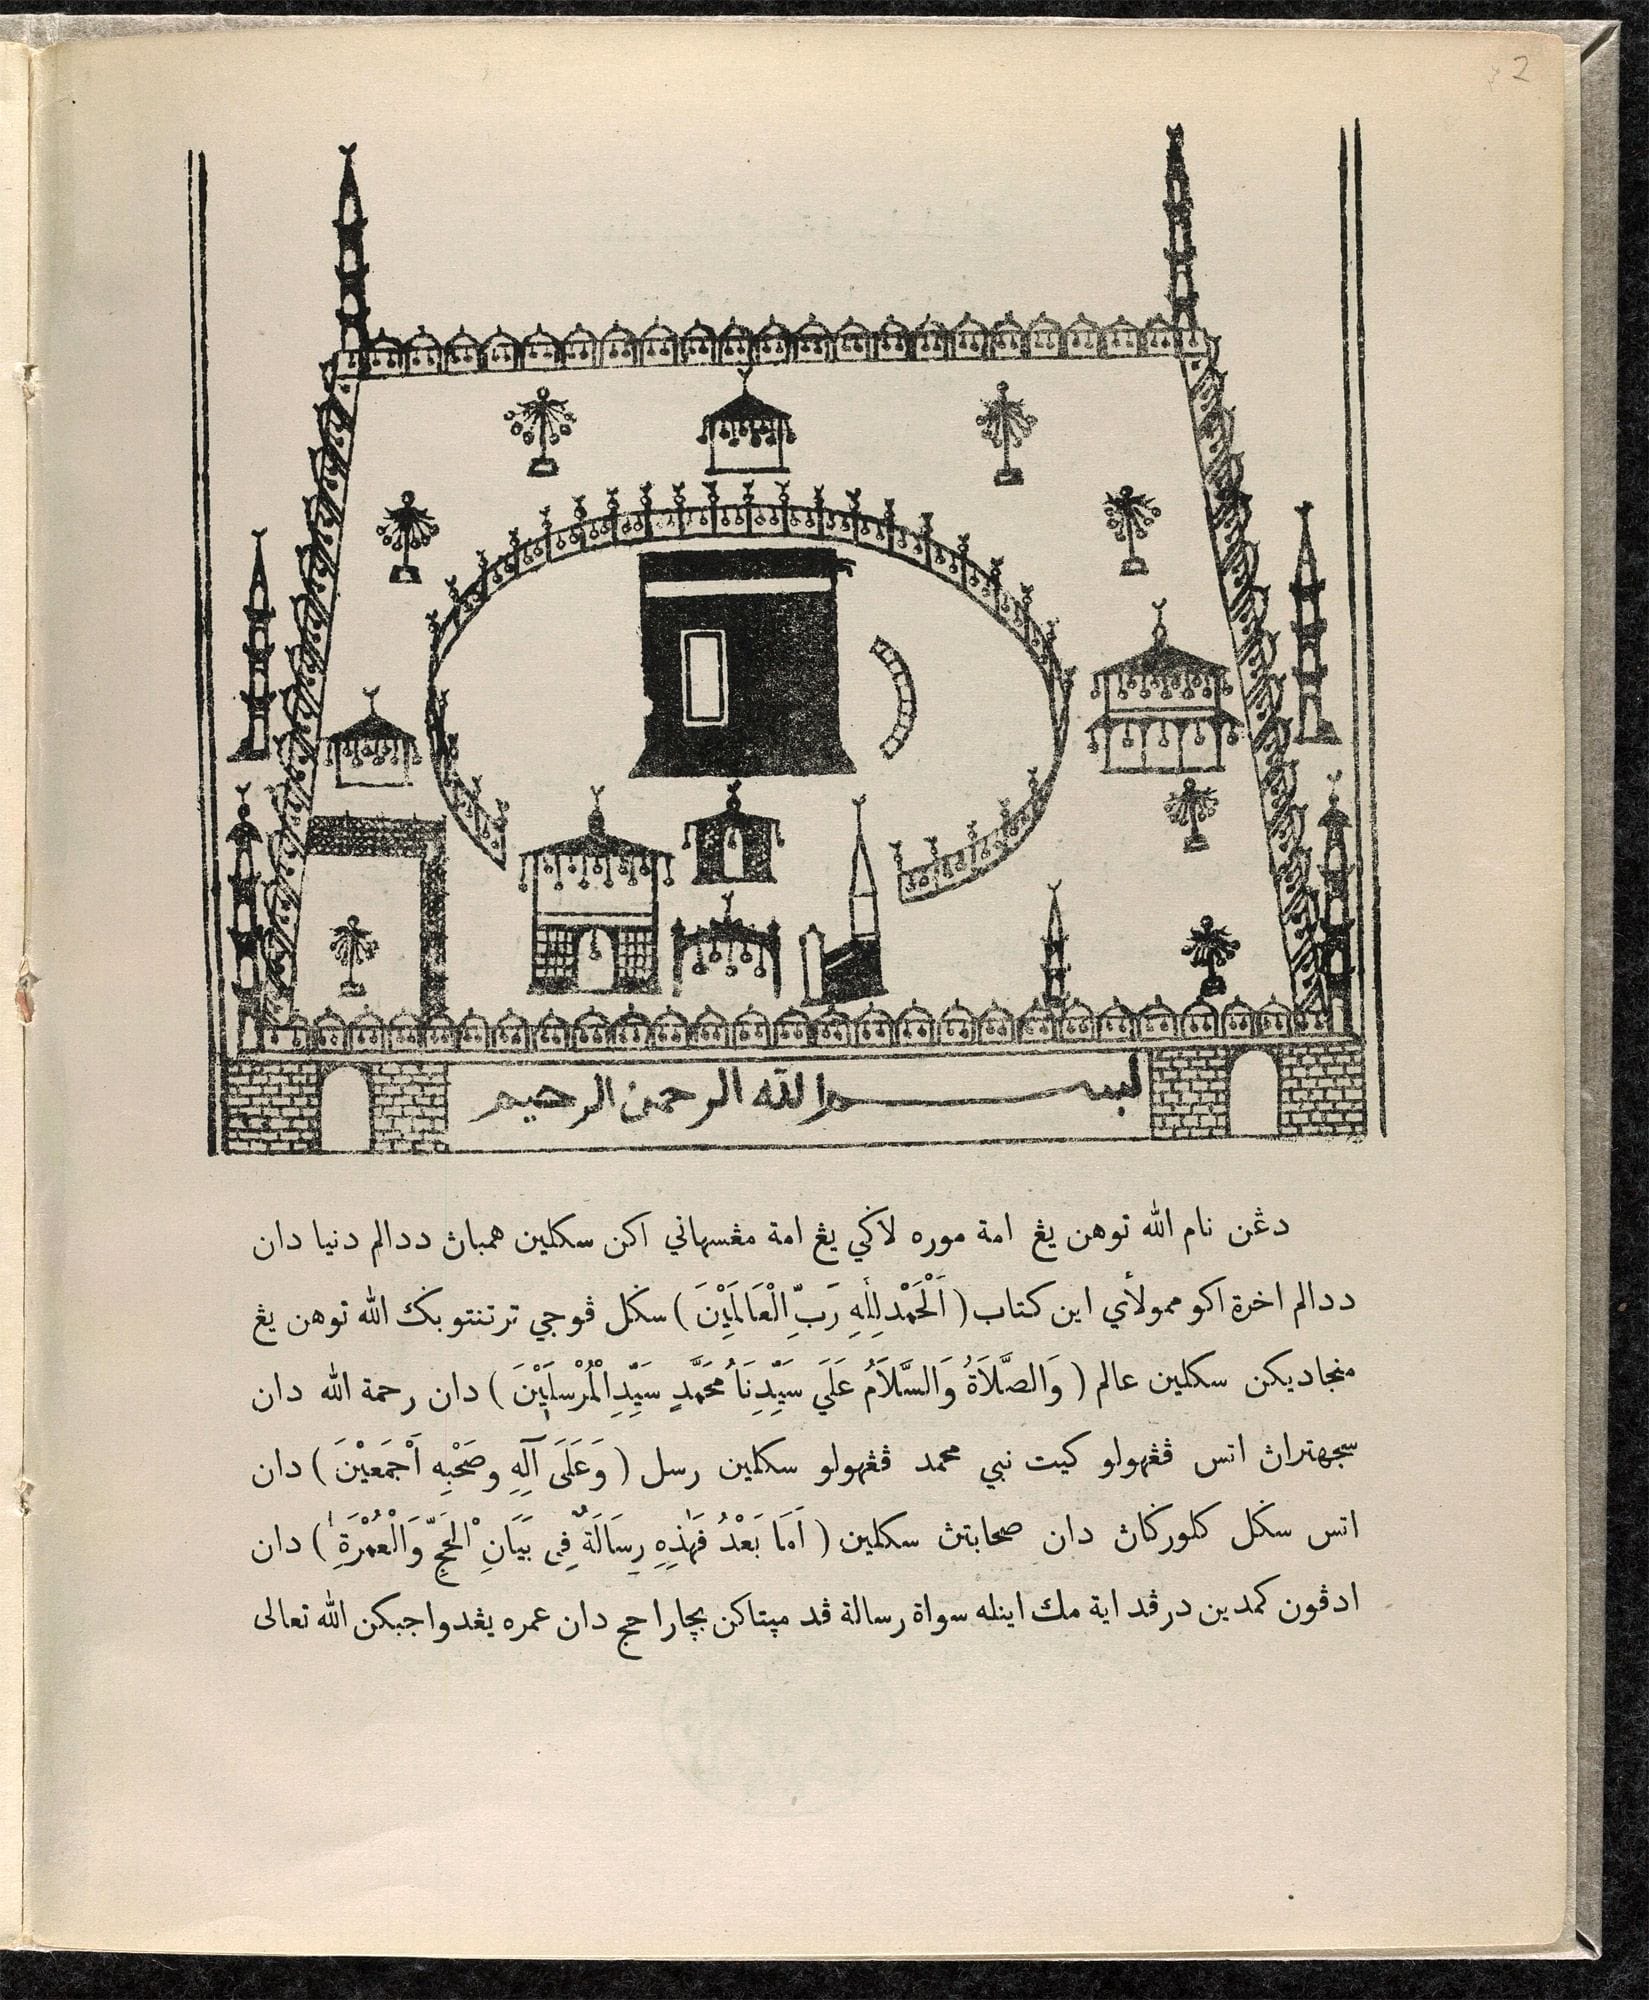 2
بسم الله الرحمن الرحيم
دڠن نام الله توهن يڠ امة موره لاݢي يڠ امة مڠسهاني اكن سكلين همباڽ ددالم دنيا دان
ددالم اخرة اكو ممولأي اين كتاب ( اَلْحَمْدُ لِلّٰهِ رَبِّ الْعَالَمِيْنَ ) سݢل ڤوجي ترتنتو بݢ الله توهن يڠ
منجاديكن سكلين عالم ( وَالصَّلَاةُ وَالسَّلَامُ عَلَي سَيِّدِنَا مُحَمَّدٍ سَيِّدِ الْمُرْسَلِيْنَ ) دان رحمة الله دان
سجهتراڽ اتس ڤڠهولو كيت نبي محمد ڤڠهولو سكلين رسل ( وَعَلَى آلِهِ وصَحْبِهِ اَجْمَعِيْنَ ) دان
اتس سݢل كلورݢاڽ دان صحابتڽ سكلين ( اَمَا بَعْدُ فَهٰذِهِ رِسَالَةٌ فِى بَيَانِ الْحَجِّ وَالْعُمْرَةِ ) دان
ادڤون كمدين درڤد اية مك اينله سواة رسالة ڤد مپتاكن بچارا حج دان عمره يڠدواجبكن الله تعالى